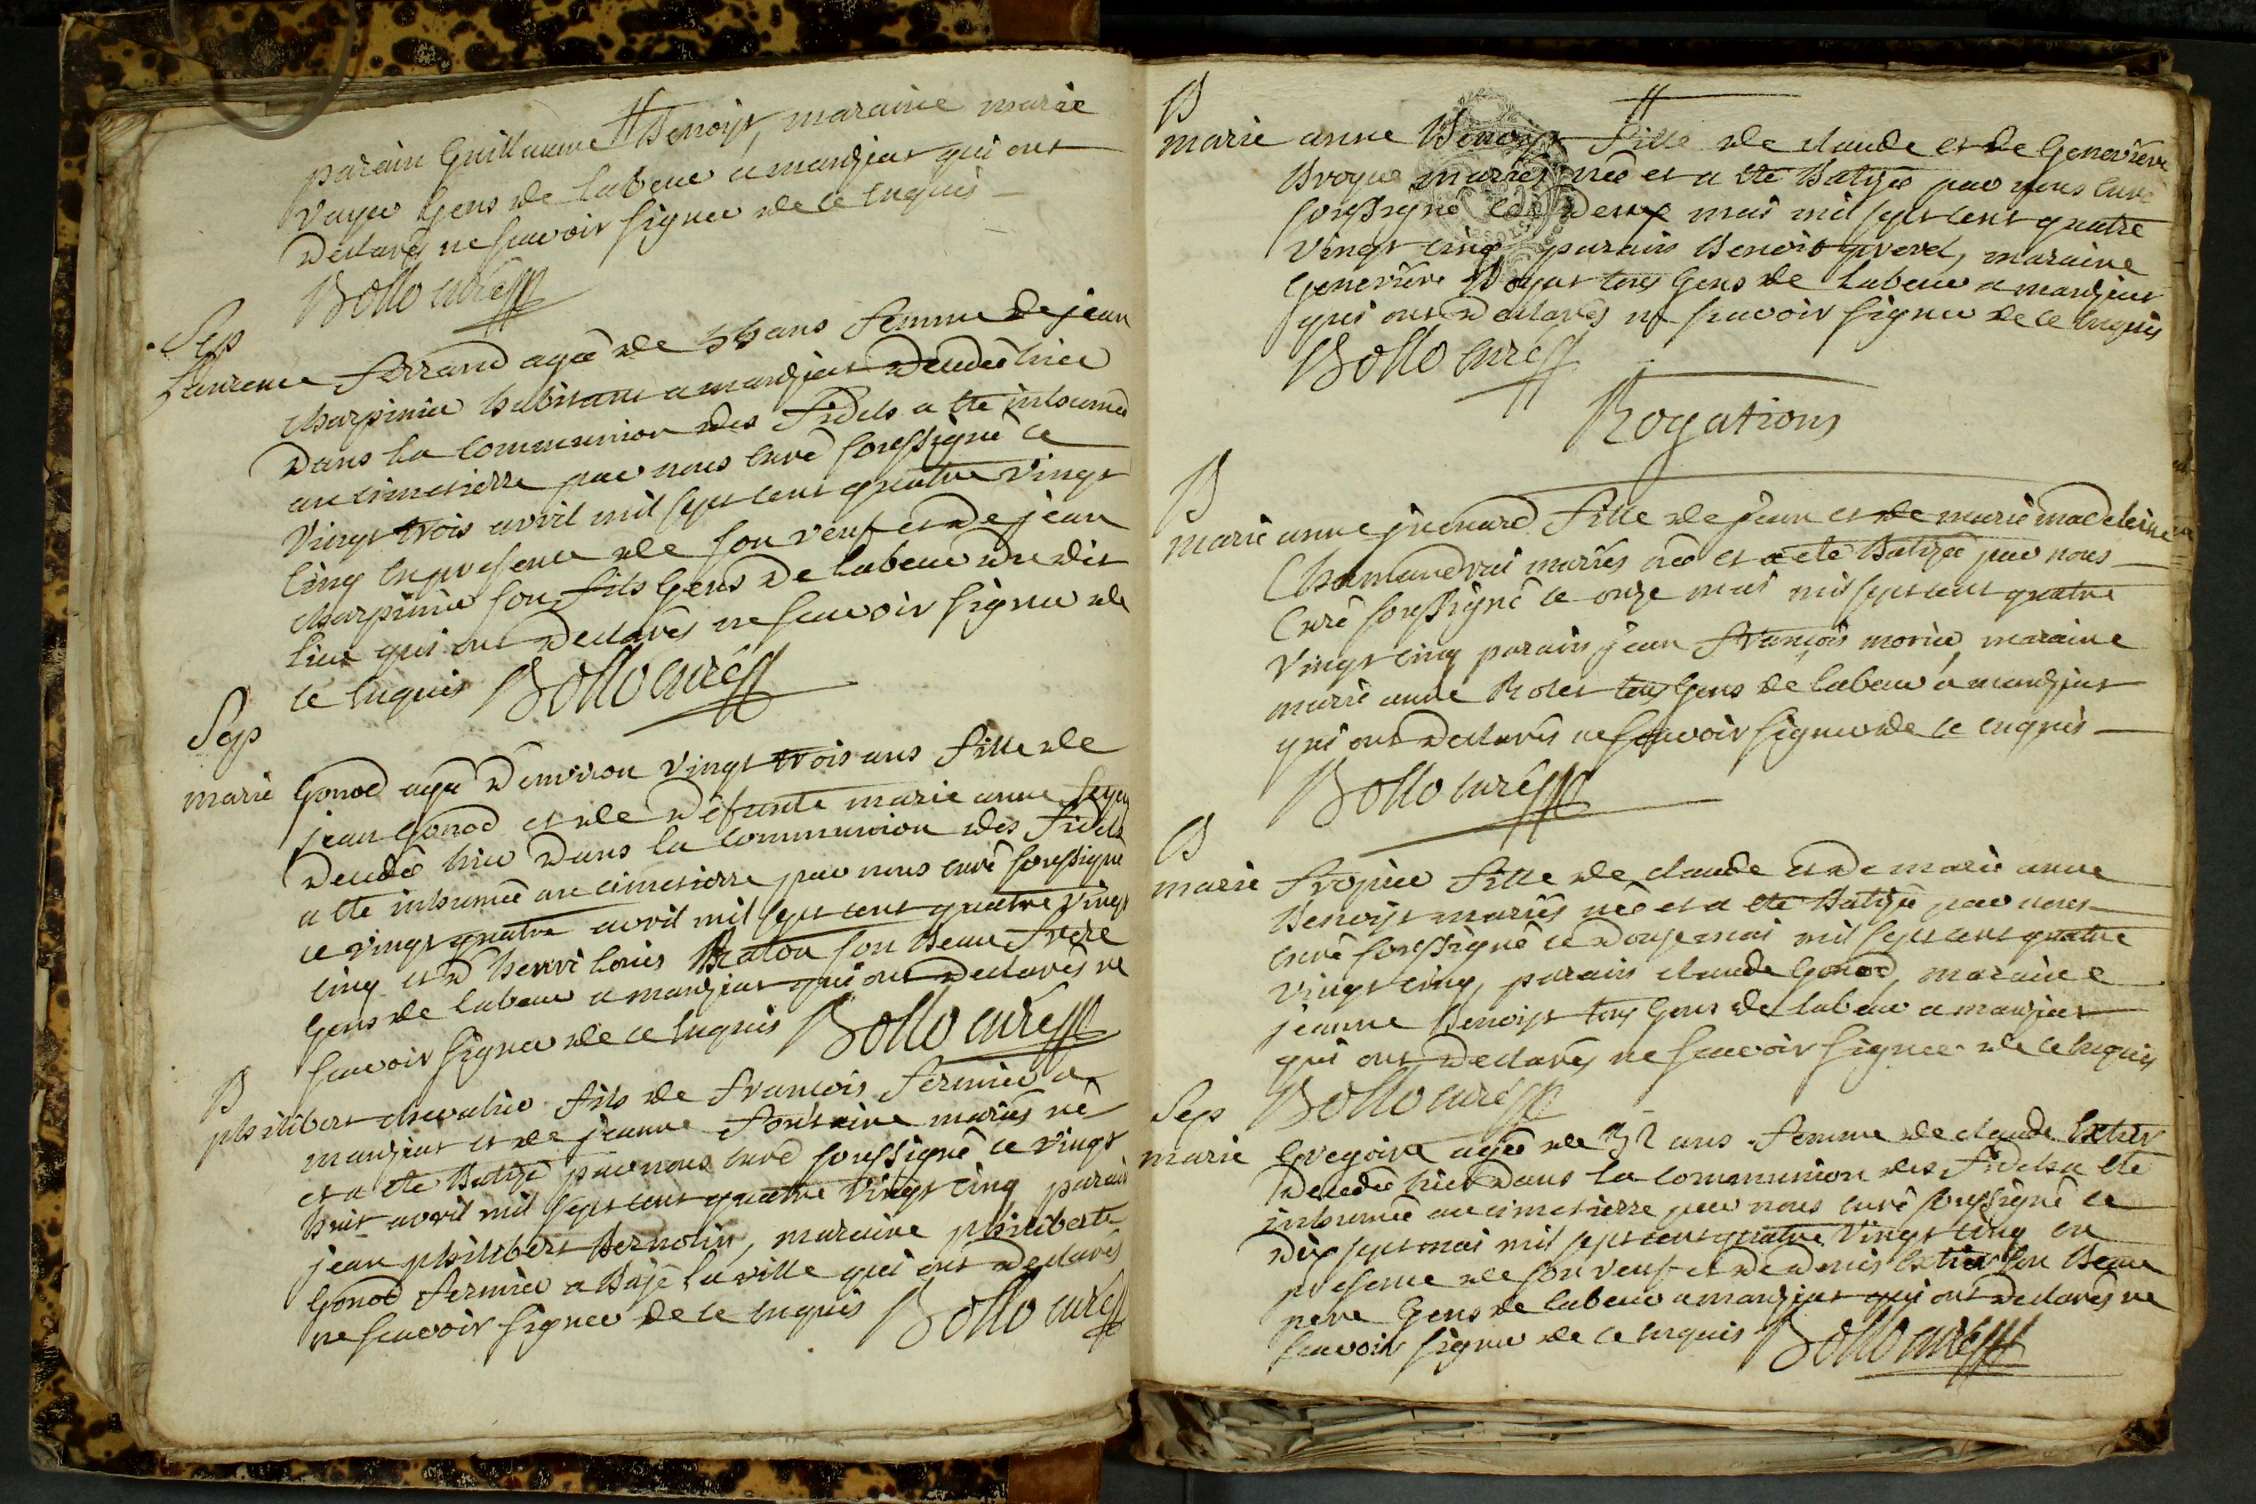 parain Guillaume Benoist, maraine marie
Vayer Gens de labeur a manziat qui ont
declarés ne scavoir signer de ce enquis
Bollo curé
Sep
Laurence Ferrand agée de ans femme de jean
charpinier habitant a manziat decedée hier
dans la communion des fidels a ete inhumée
au cimetierre par nous curé soussigné ce
vingt trois avril mil sept cent quatre vingt
cinq en presence de son veuf et de jean
charpinier son fils Gens de labeur du dit
lieu qui ont declarés ne scavoir signer de
ce enquis Bollo curé
Sep
marie Gonod agée d'environ vingt trois ans fille de
jean Gonod et de defunte marie anne
decedée hier dans la communion des fidels
a ete inhumée au cimetierre par nous curé soussigné
ce vingt quatre avril mil sept cent quatre vingt
cinq et d'henri louis Braton son beau frere
Gens de labeur a manziat qui ont declarés ne
scavoir signer de ce enquis Bollo curé
B
philibert chevalier fils de francois fermier a
manziat et de jeanne fontaine mariés né
et a ete Batizé par nous curé soussigné ce vingt
huit avril mil sept cent quatre vingt cinq parain
jean philibert Bernolin, maraine philiberte
Gonod fermier a Bajé la ville qui ont declarés
ne scavoir signer de ce enquis Bollo curé
B
marie anne Benoist fille de claude et de Genevieve
Broyer mariés née et a ete Batizée par nous curé
soussigné ce deux mai mil sept cent quatre
vingt cinq parain Benoist, maraine
Genevieve Boyat tous Gens de labeur a manziat
qui ont declarés ne scavoir signer de ce enquis
Bollo curé
Rogations
B
marie anne jvenard fille de jean et de marie madeleine
Chamandrai mariés née et a ete Batizée par nous
Curé soussigné ce onze mai mil sept cent quatre
vingt cinq parain jean francois morier, maraine
marie anne Rolet tous Gens de labeur a manziat
qui ont declarés ne scavoir signer de ce enquis
Bollo curé
B
marie fropier fille de claude et de marie anne
Benoist mariés née et a ete Batizée par nous
curé soussigné ce douze mai mil sept cent quatre
vingt cinq, parain claude Gonod, maraine
jeanne Benoist tous Gens de labeur a manziat
qui ont declarés ne scavoir signer de ce enquis
Bollo curé
Sep
marie Gregoire agée de 32 ans femme de claude
decedée hier dans la communion des fidels a ete
inhumée au cimetierre par nous curé soussigné ce
dix sept mai mil sept cent quatre vingt cinq en
presence de son veuf et de denis son beau
pere Gens de labeur a manziat qui ont declarés ne
scavoir signer de ce enquis Bollo curé